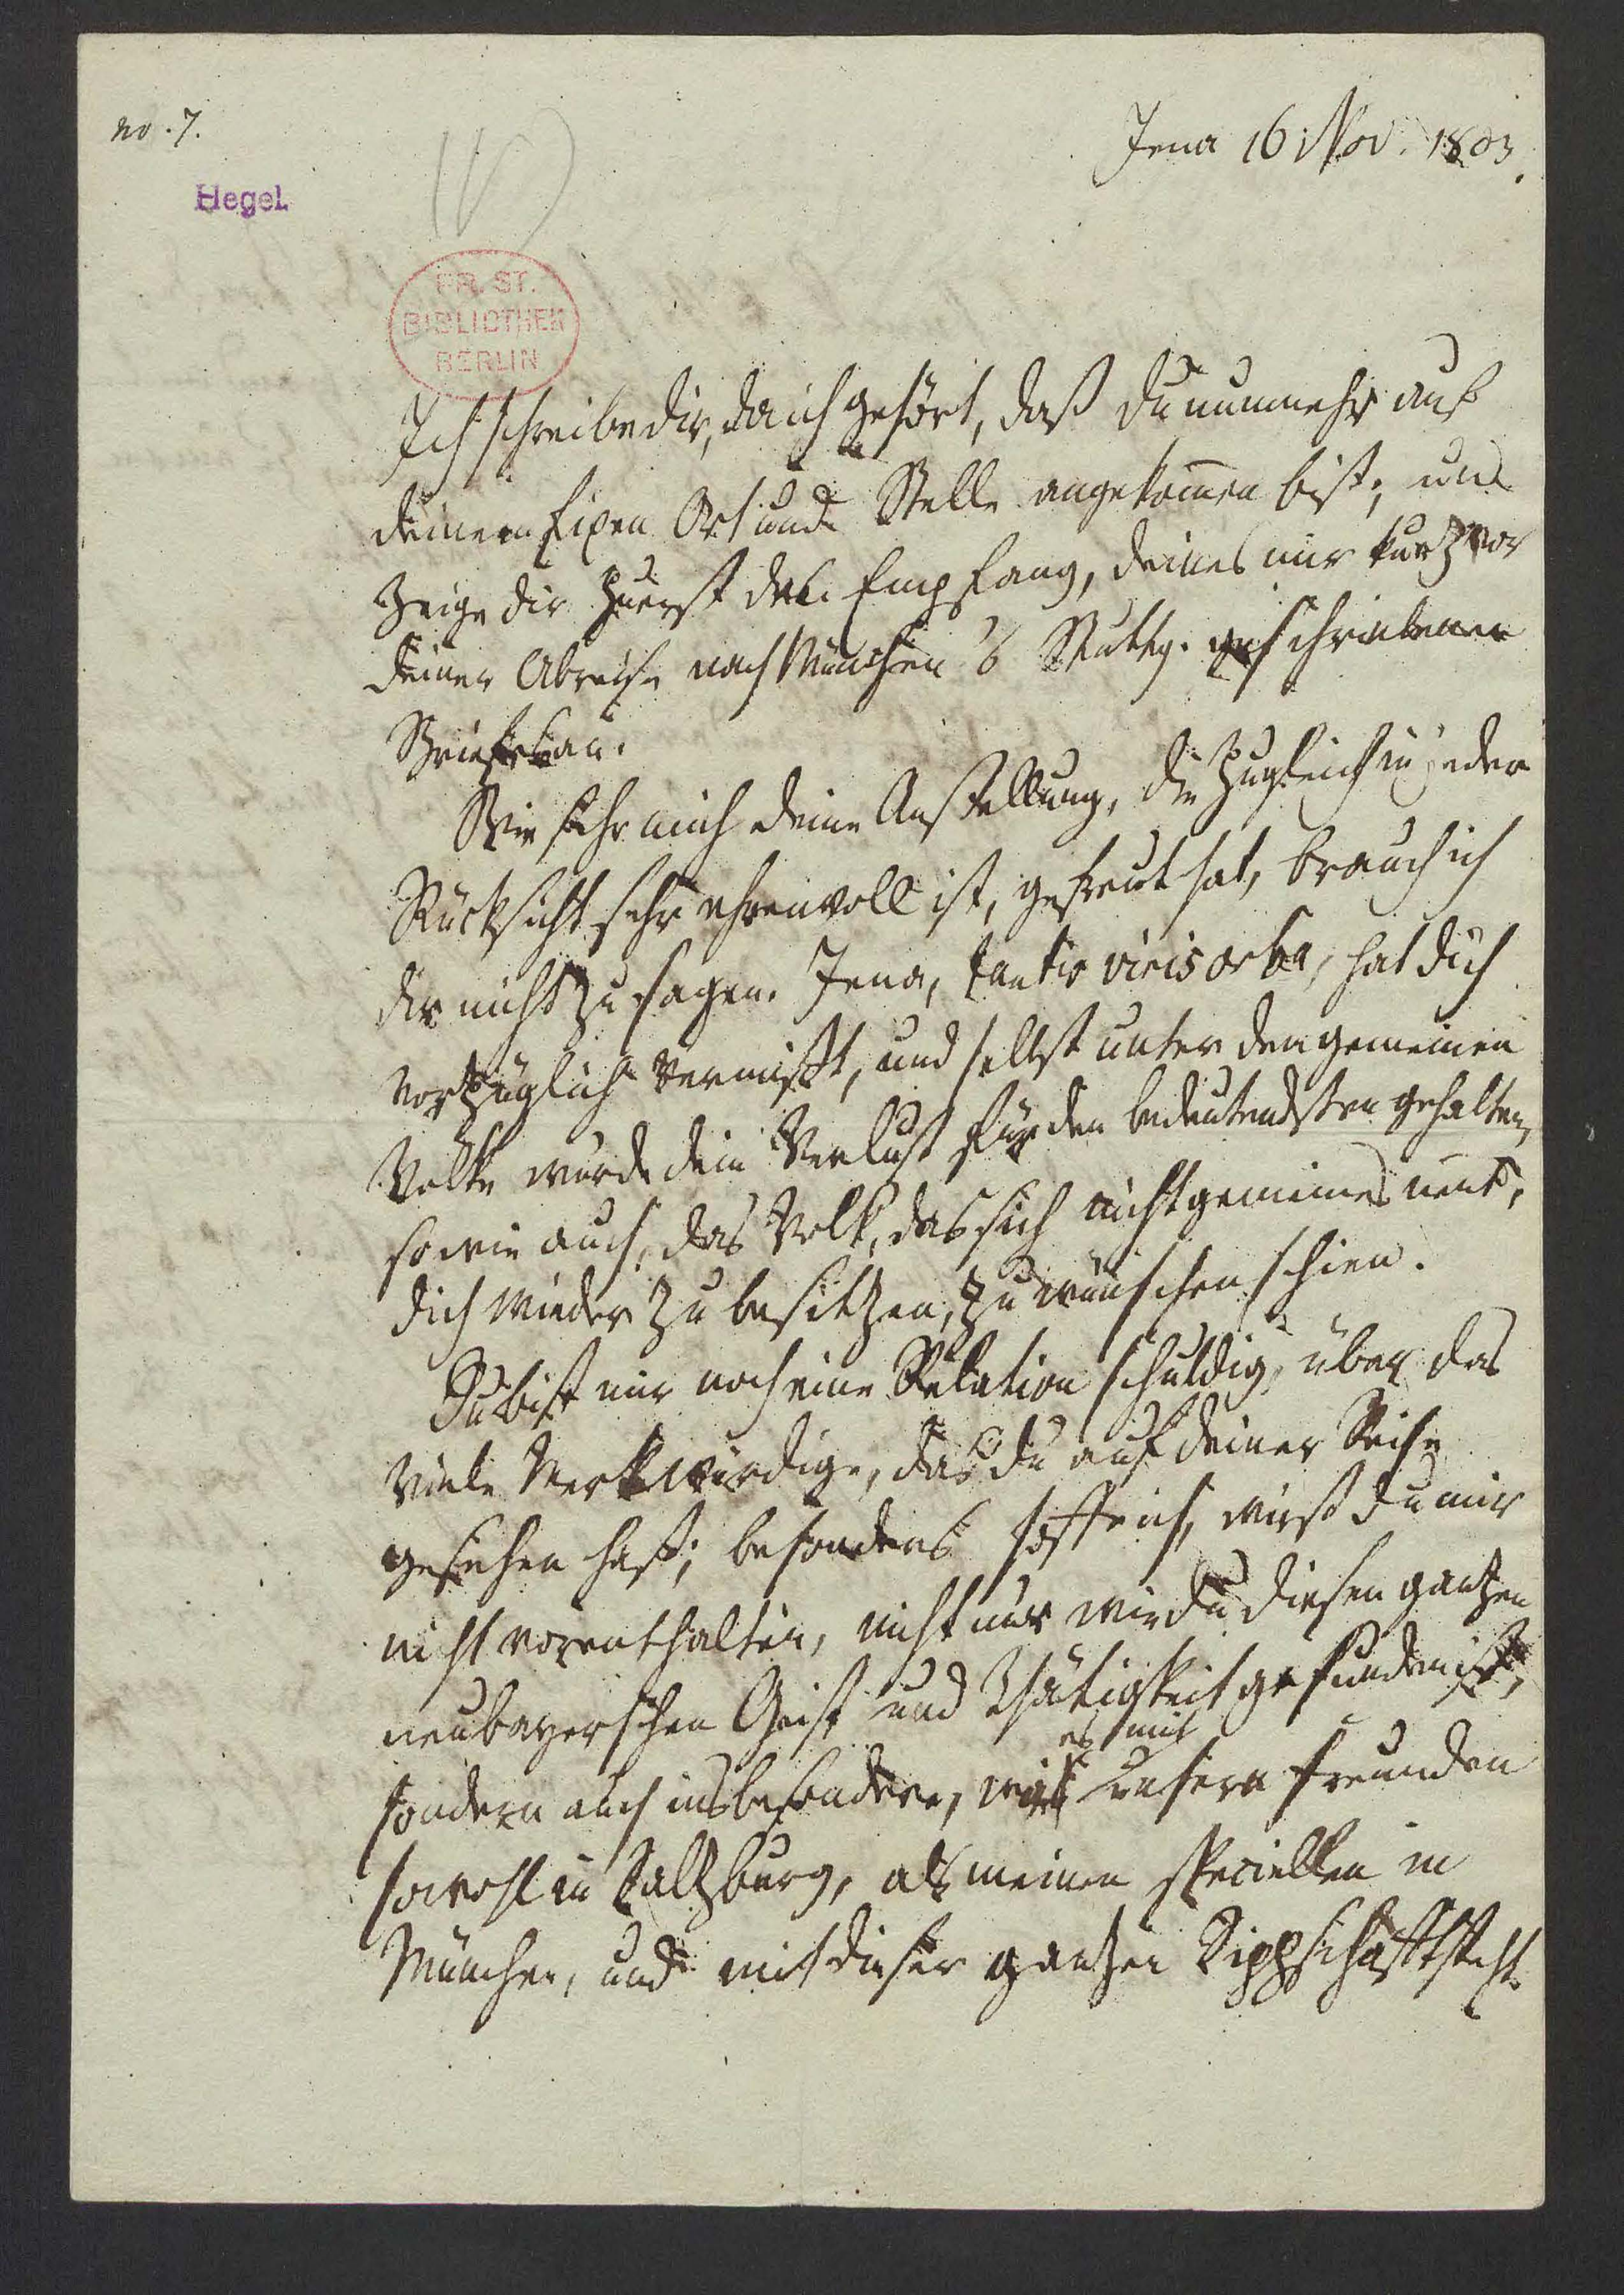 no. 7.
Jena 16 Nov. 1803.
Hegel
PR. ST.
BIBLIOTHEK
BERLIN
Ich schreibe dir, da ich gehört, daß du nunmehr auf
deinem fixen Ort und Stelle angekom̄en bist; und
zeige dir zuerst den Empfang, deines mir kurz vor
deiner Abreise nach München u Stuttg. geschriebenen
Briefes an.
Wie sehr mich deine Anstellung, die zugleich in jeder
Rücksicht sehr ehrenvoll ist, gefreut hat, brauch ich
dir nicht zu sagen. Jena, tantis viris orba, hat dich
vorzüglich vermißt, und selbst unter den gemeinen
Volke wurde dein Verlust für den bedeutendsten gehalten,
so wie auch, das Volk, das sich nicht gemeines nent,
dich wieder zu besitzen, zu wünschen schien.
Du bist mir noch eine Relation schuldig, über das
viele Merkwürdige, das du auf deiner Reise
gesehen hast; besonders hoffe ich, wirst du mir
nicht vorenthalten, nicht nur wie du diesen gantzen
neubayerschen Geist und Thätigkeit gefunden hast,
es mit
sondern auch insbesondere, wie unsern Freunden
sowohl in Saltzburg, als meinen speciellen in
München, und mit dieser gantzen Sippschafft steht.